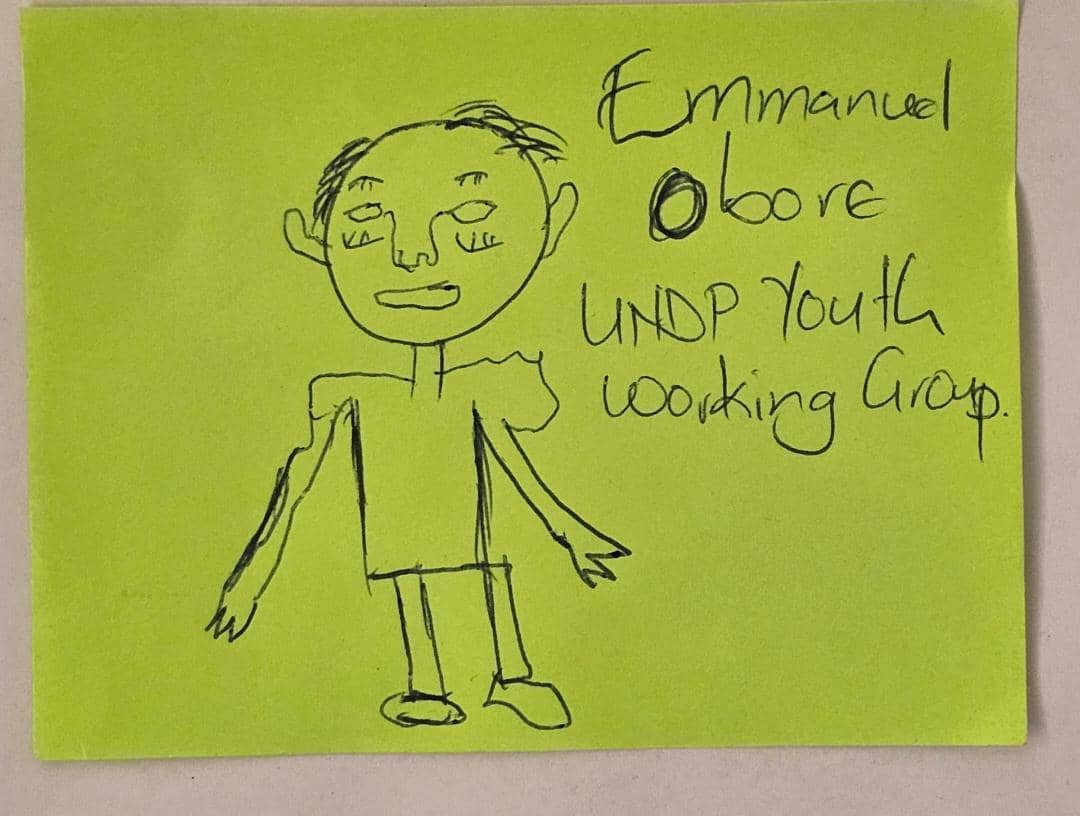 Emmanuel
Obore
UNDP Youth
Working Group.